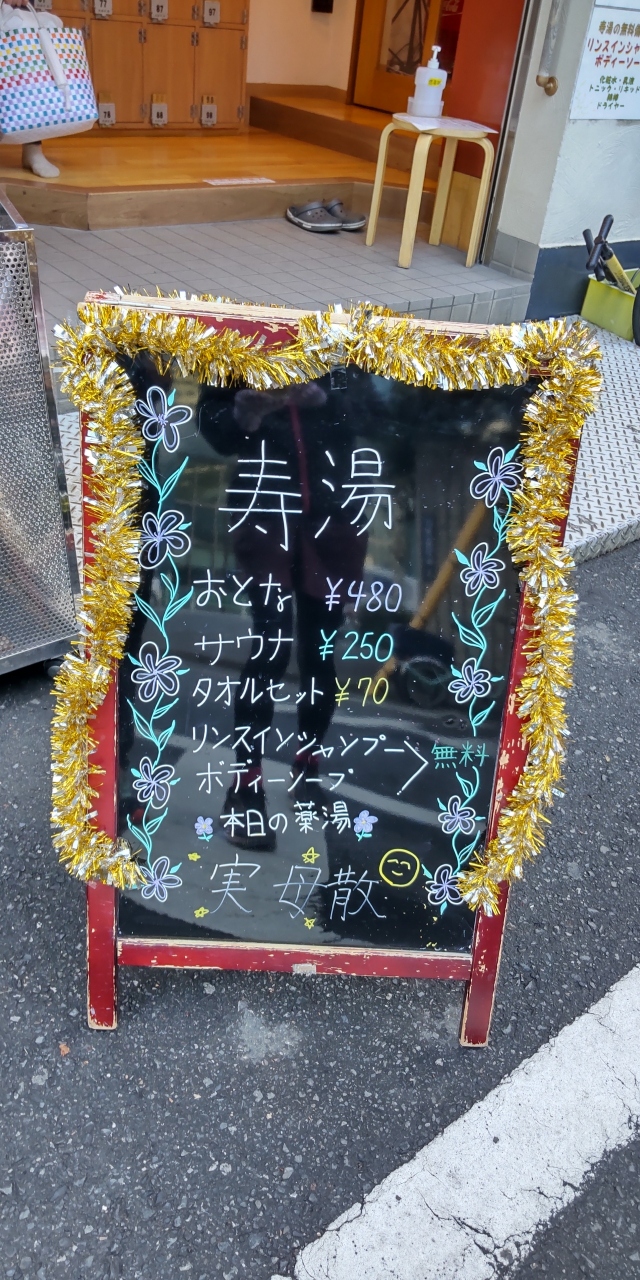 77
87
97
78
88
98
寿湯の無料備
リンスインシャ
ボディーソー
化粧水・乳液
トニック・リキッド
綿棒
ドライヤー
寿湯
おとな ¥480
サウナ ¥250
タオルセット ¥70
リンスインシャンプー
ボディーソープ
無料
本日の薬湯
実母散